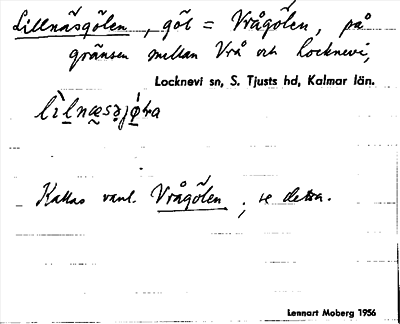 Lillnäsgölen, göl = Vrågölen, på
gränsen mellan Vrå och Locknevi,
Locknevi sn, S. Tjusts hd, Kalmar län.
Kallas vanl. Vrågölen, se detta.
Lennart Moberg 1956